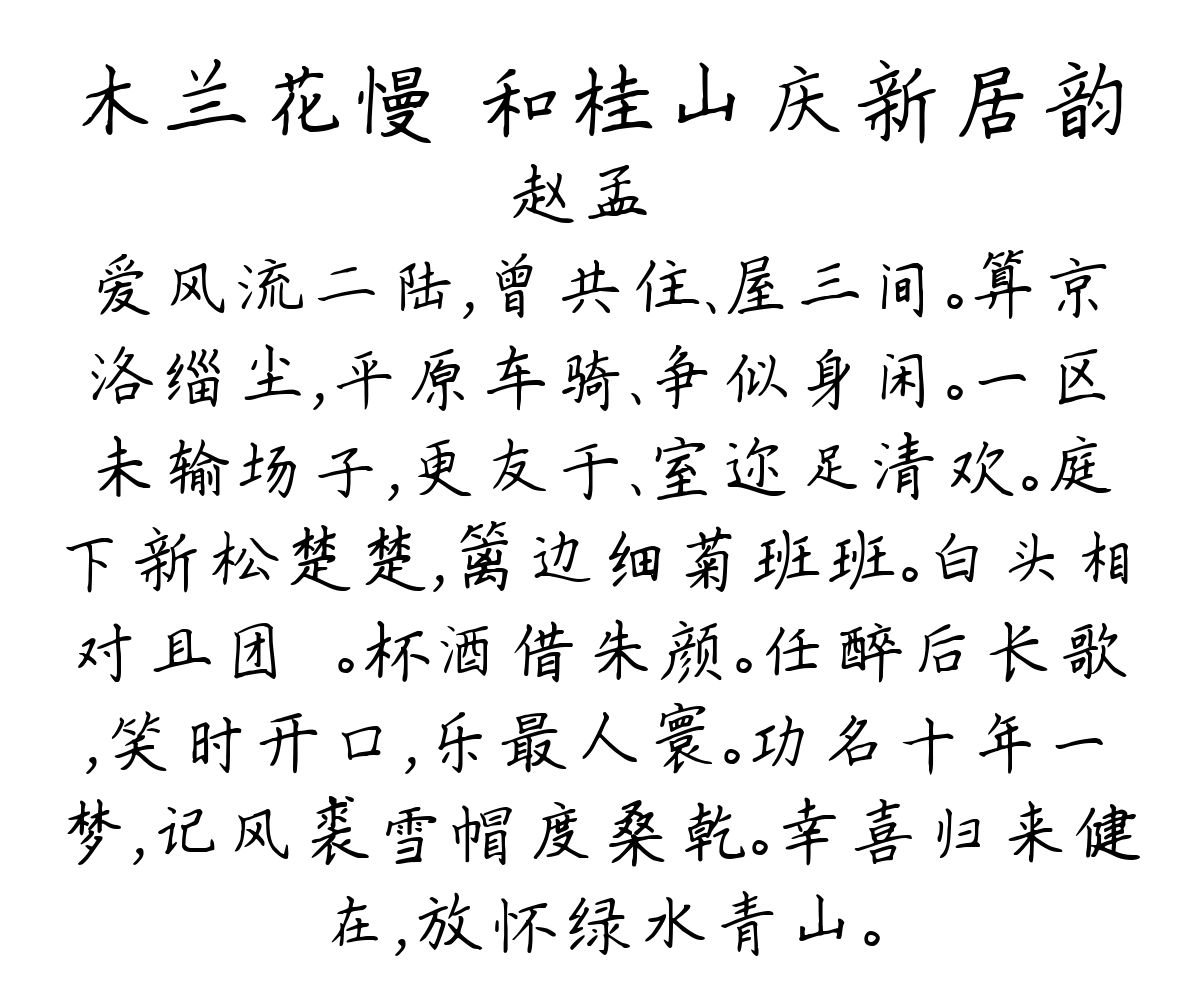 木兰花慢 和桂山庆新居韵
赵孟
爱风流二陆,曾共住、屋三间。算京
洛缁尘,平原车骑、争似身闲。一区
未输场子,更友于、室迩足清欢。庭
下新松楚楚,篱边细菊班班。白头相
对且团 。杯酒借朱颜。任醉后长歌
,笑时开口,乐最人寰。功名十年一
梦,记风裘雪帽度桑乾。幸喜归来健
在,放怀绿水青山。